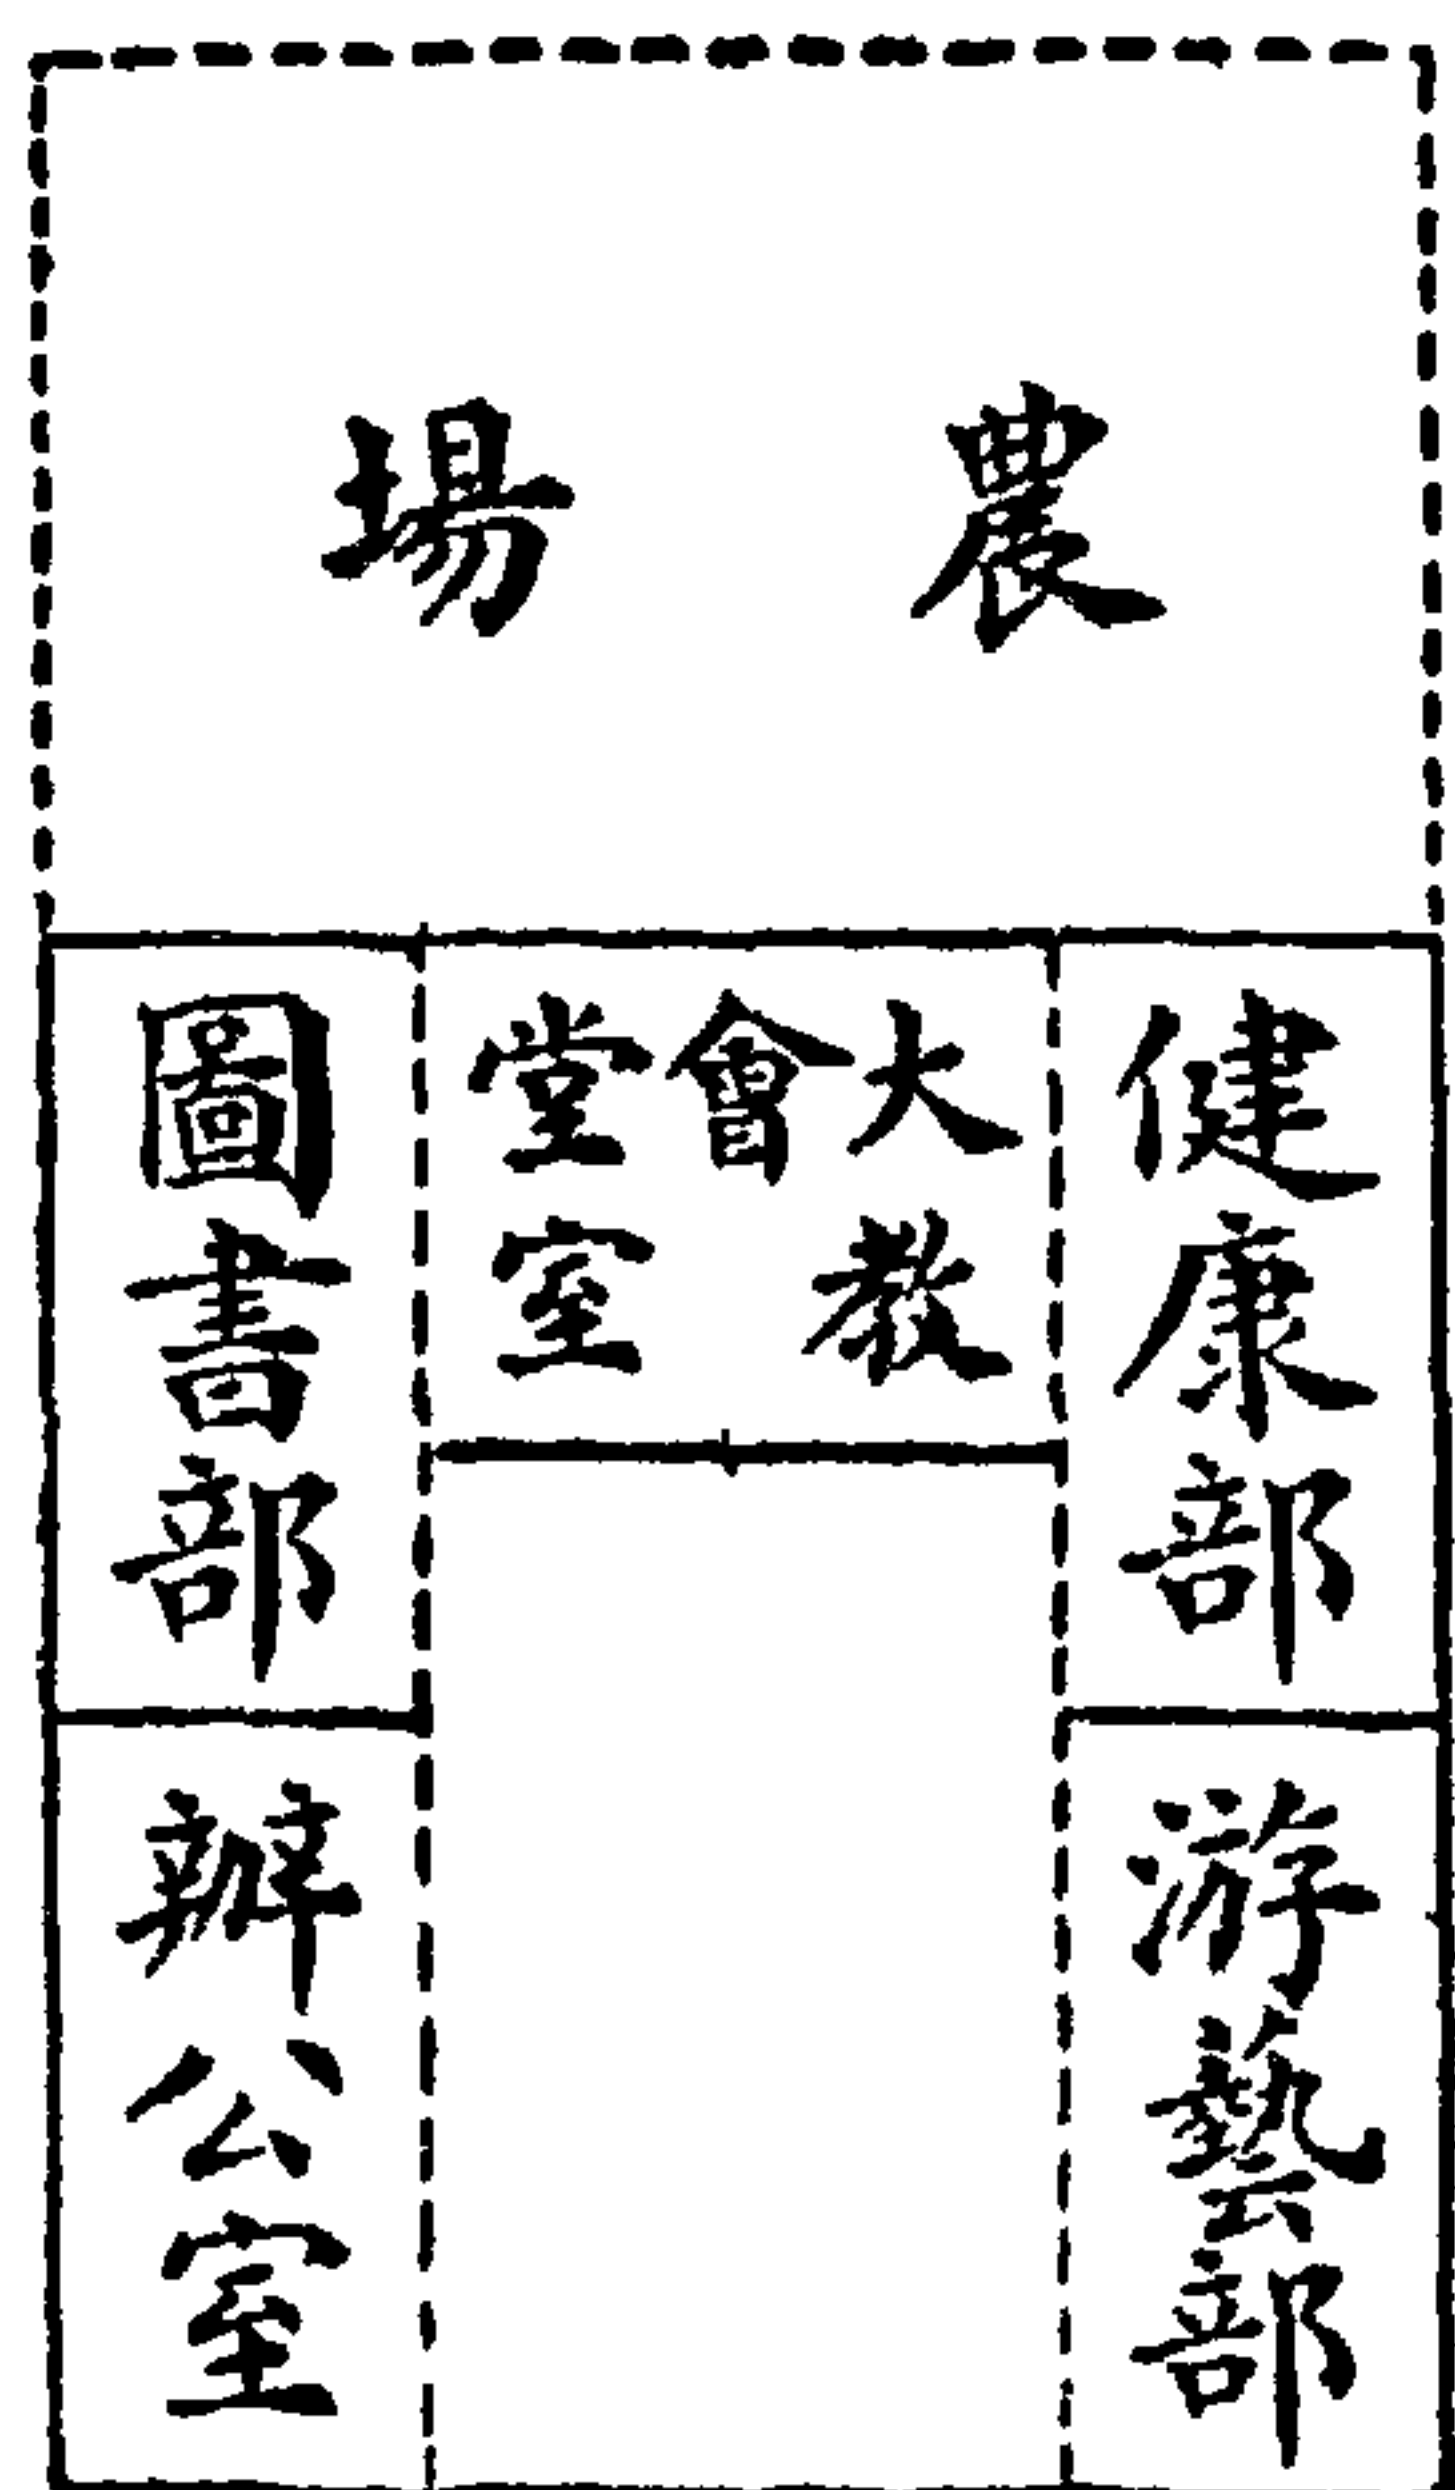 農場
健康部
大會堂
教室
圖書部
游藝部
辦公室